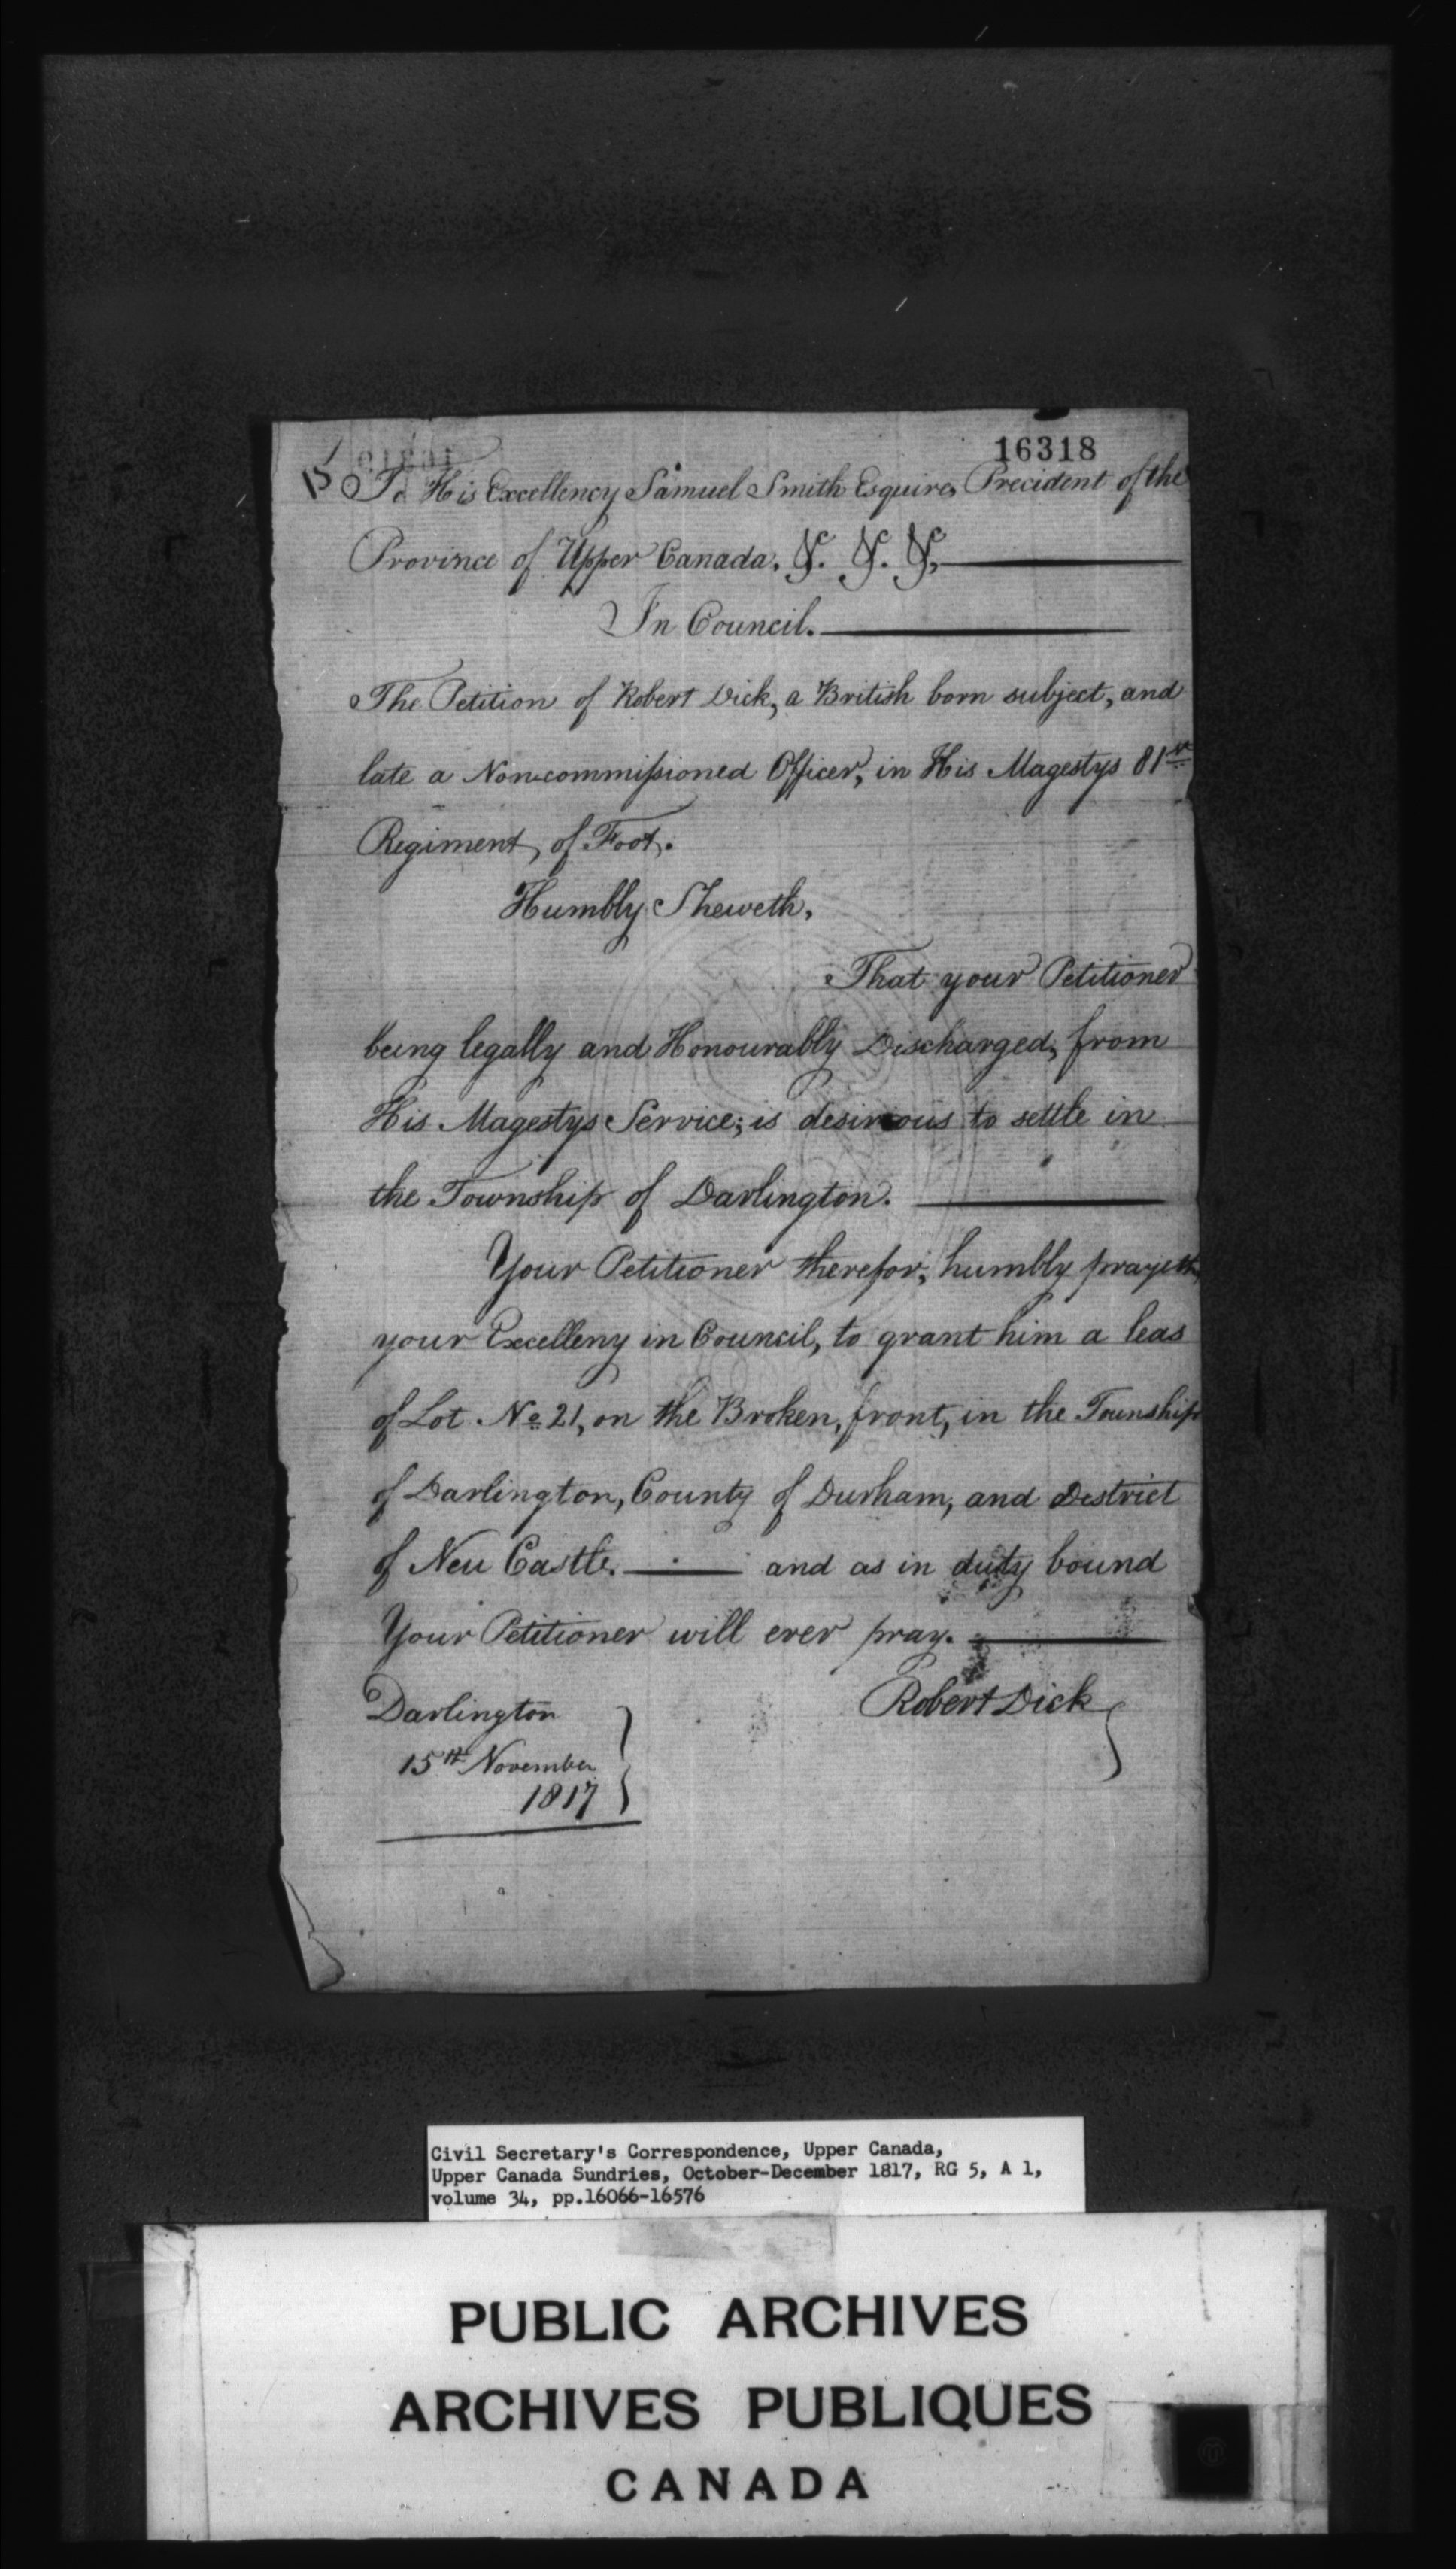 16318
To His Excellency Samuel Smith Esquire, Precident of the
Province of Upper Canada, &c. &c. &c,
In Council.
The Petition of Robert Dick, a British born subject, and
late a Noncommissioned Officer, in His Magestys 81st
Regiment, of Foot.
Humbly Sheweth,
That your Petitioner
being legally and Honourably Discharged, from
His Magestys Service; is desirious to settle in
the Township of Darlington.
Your Petitioner therefor, humbly prayeth,
your Excelleny in Council, to grant him a leas
of Lot No 21, on the Broken, front, in the Township
of Darlington, County of Durham, and District
of New Castle. and as in duty bound
Your Petitioner will ever pray.
Robert Dick
Darlington
15th November
1817
Civil Secretary's Correspondence, Upper Canada,
Upper Canada Sundries, October-December 1817, RG 5, A 1,
volume 34, pp.16066-16576
PUBLIC ARCHIVES
ARCHIVES PUBLIQUES
CANADA